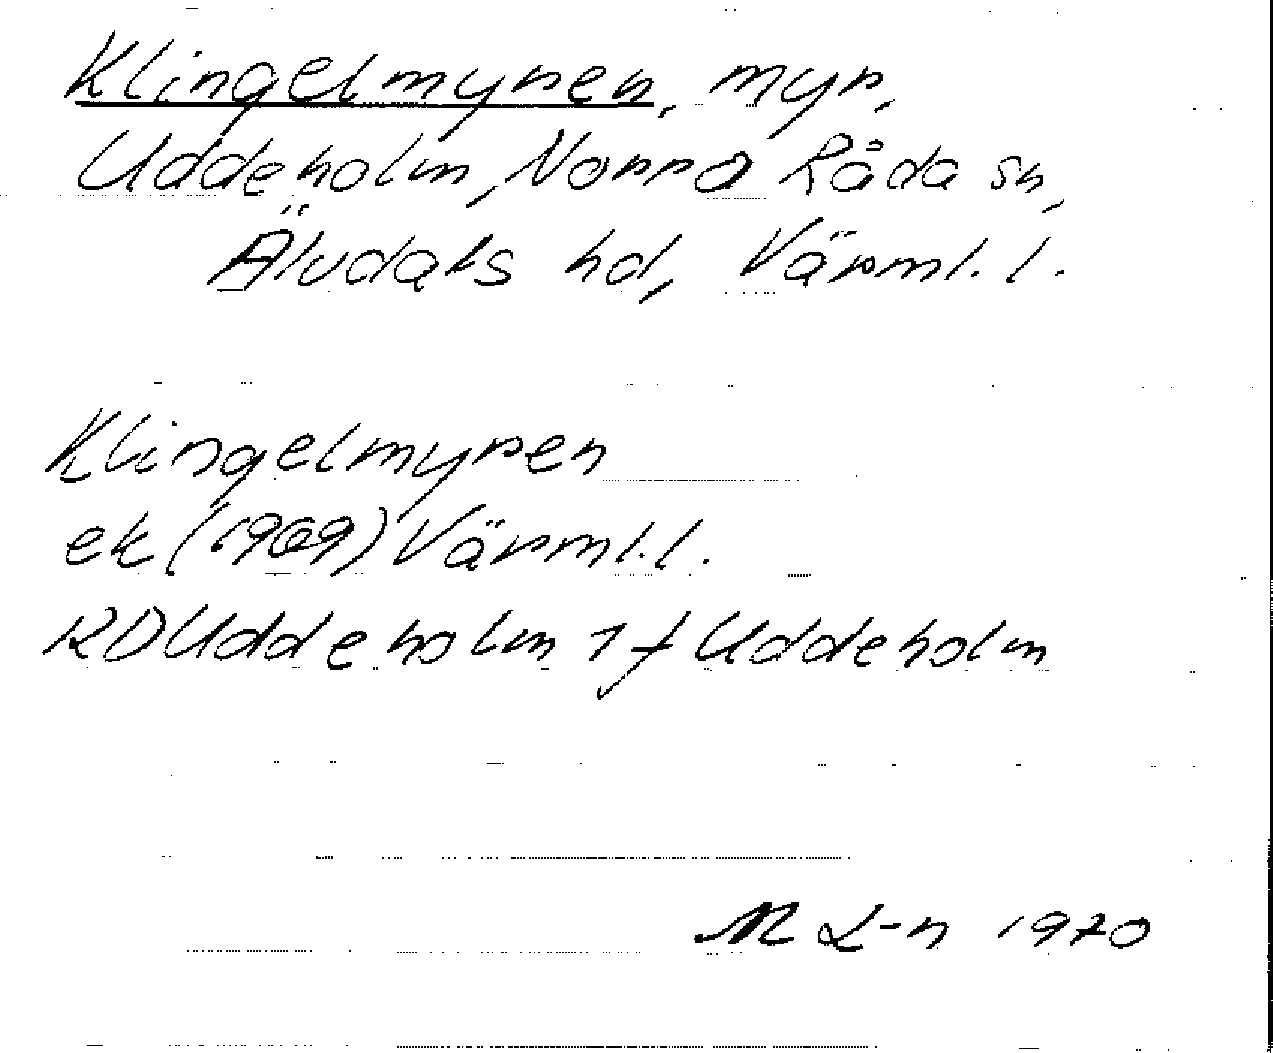 Klingelmyren, myr,
Uddeholm, Norra Råda sn,
Älvdals hd, Värml. l.
Klingelmyren
ek (1969) Värml. l.
RD Uddeholm 1 f Uddeholm
M L-n 1970